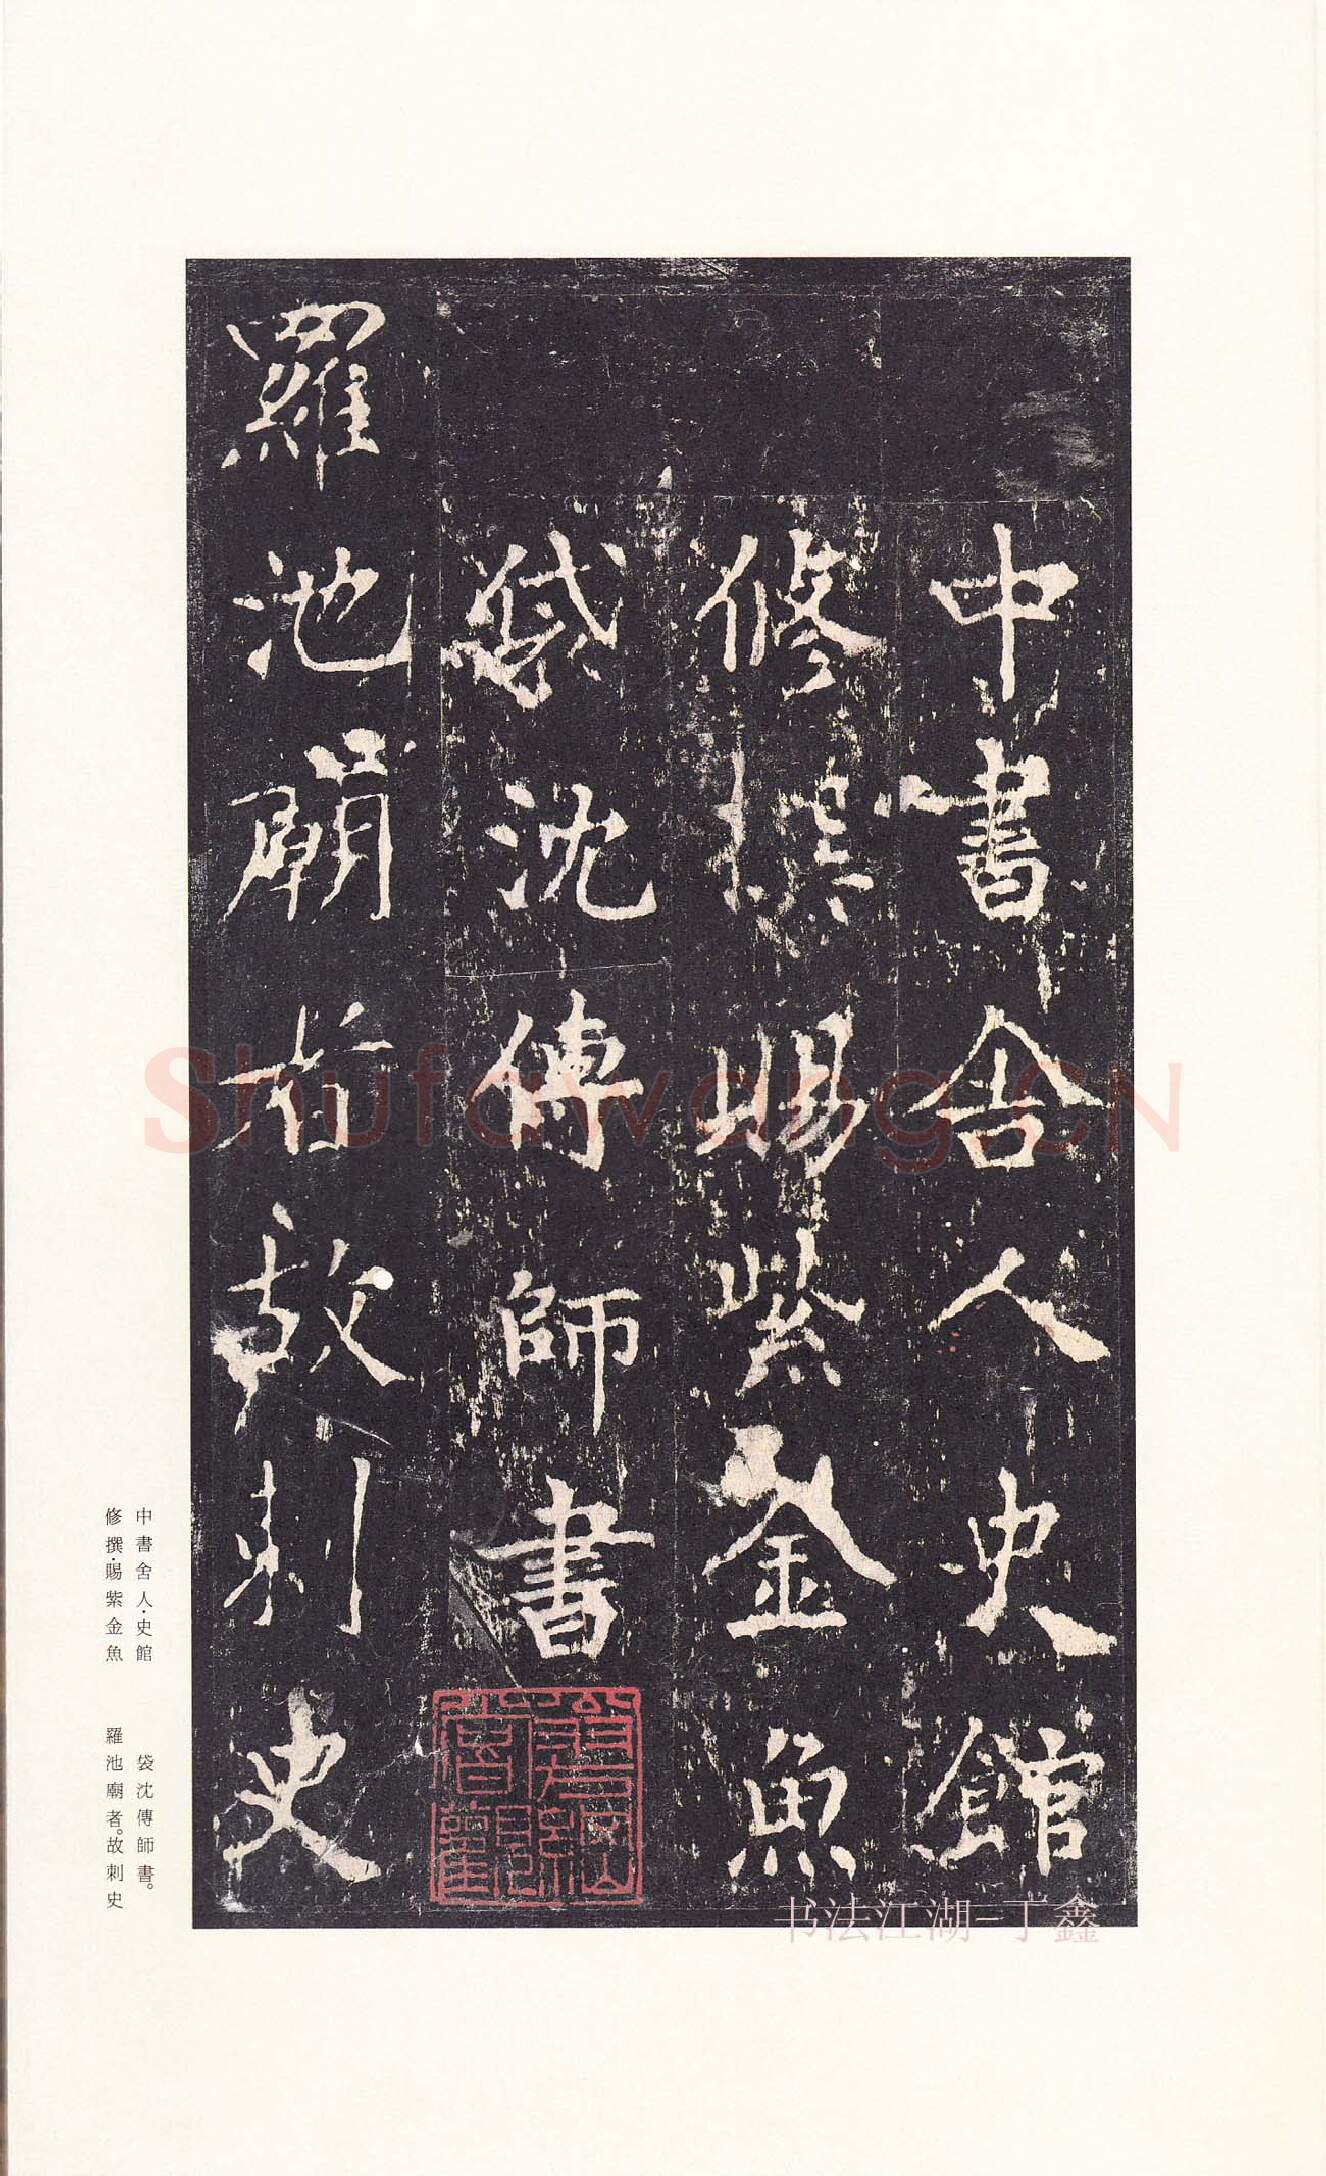 中書舍人史館
修撰賜紫金魚
袋沈傳師書
羅池廟者故刺史
中書舍人·史館
修撰·賜紫金魚
袋沈傳師書。
羅池廟者。故刺史
Shufawang.CN
书法江湖-丁鑫